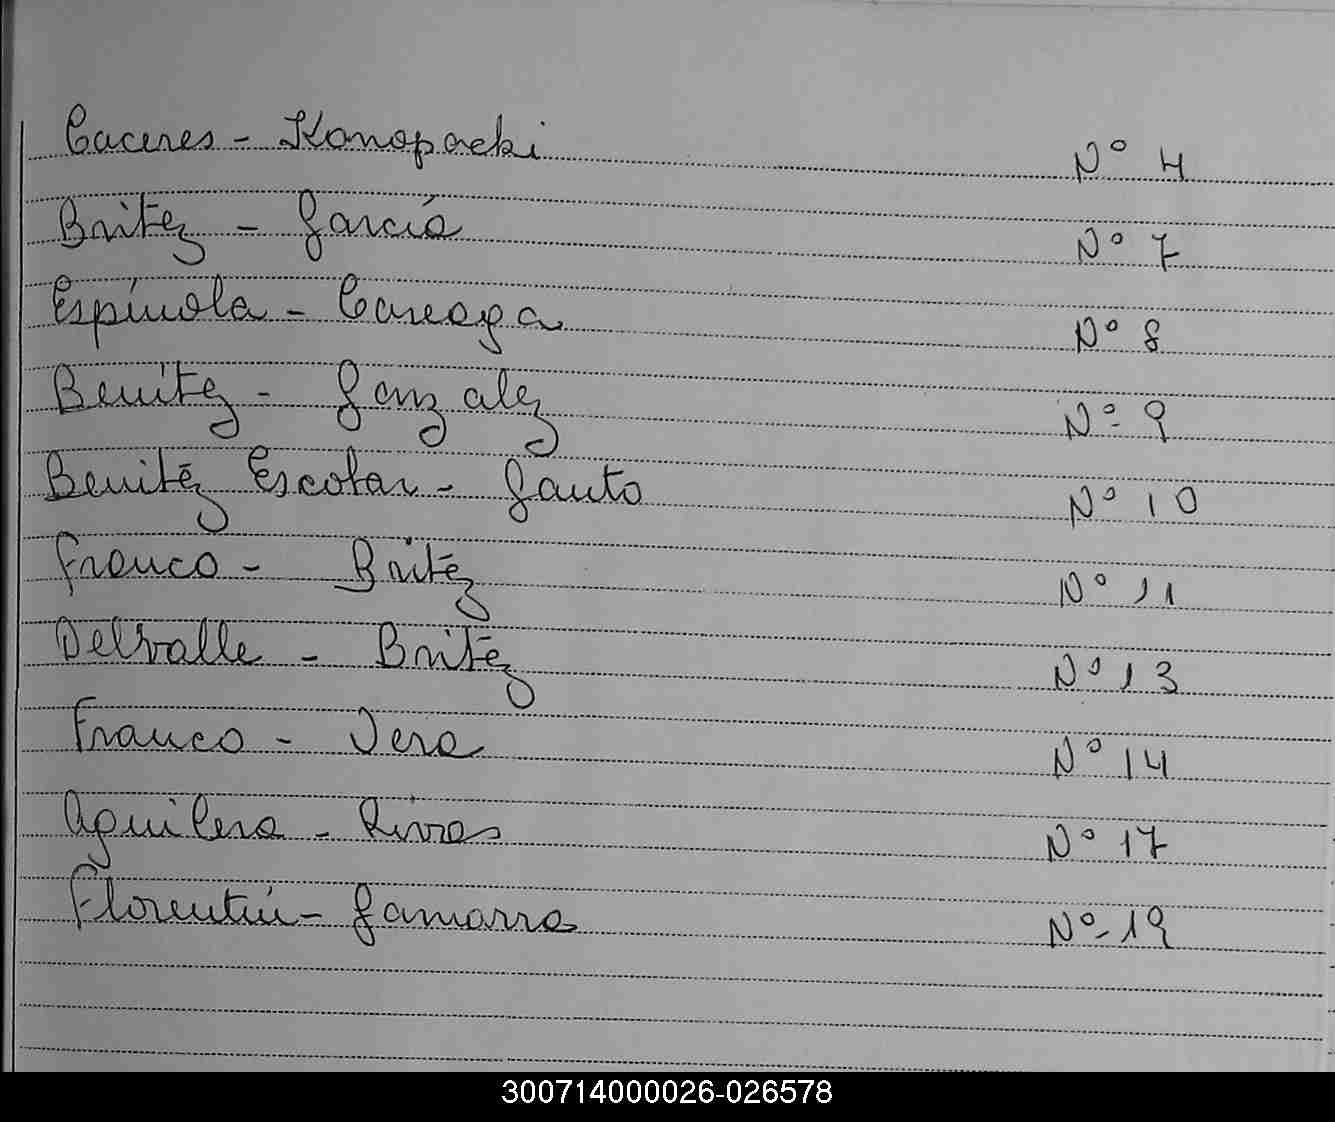 Caceres - Konopacki N° 4
Britez - García N° 7
Espínola - Careaga N° 8
Benítez - Gonzalez N° 9
Benitez Escobar - Gauto N° 10
Franco - Britez N° 11
Delvalle - Britez N° 13
Franco - Vera N° 14
Aguilera - Rivas N° 17
Florentín - Gamarra N° 19
300714000026-026578